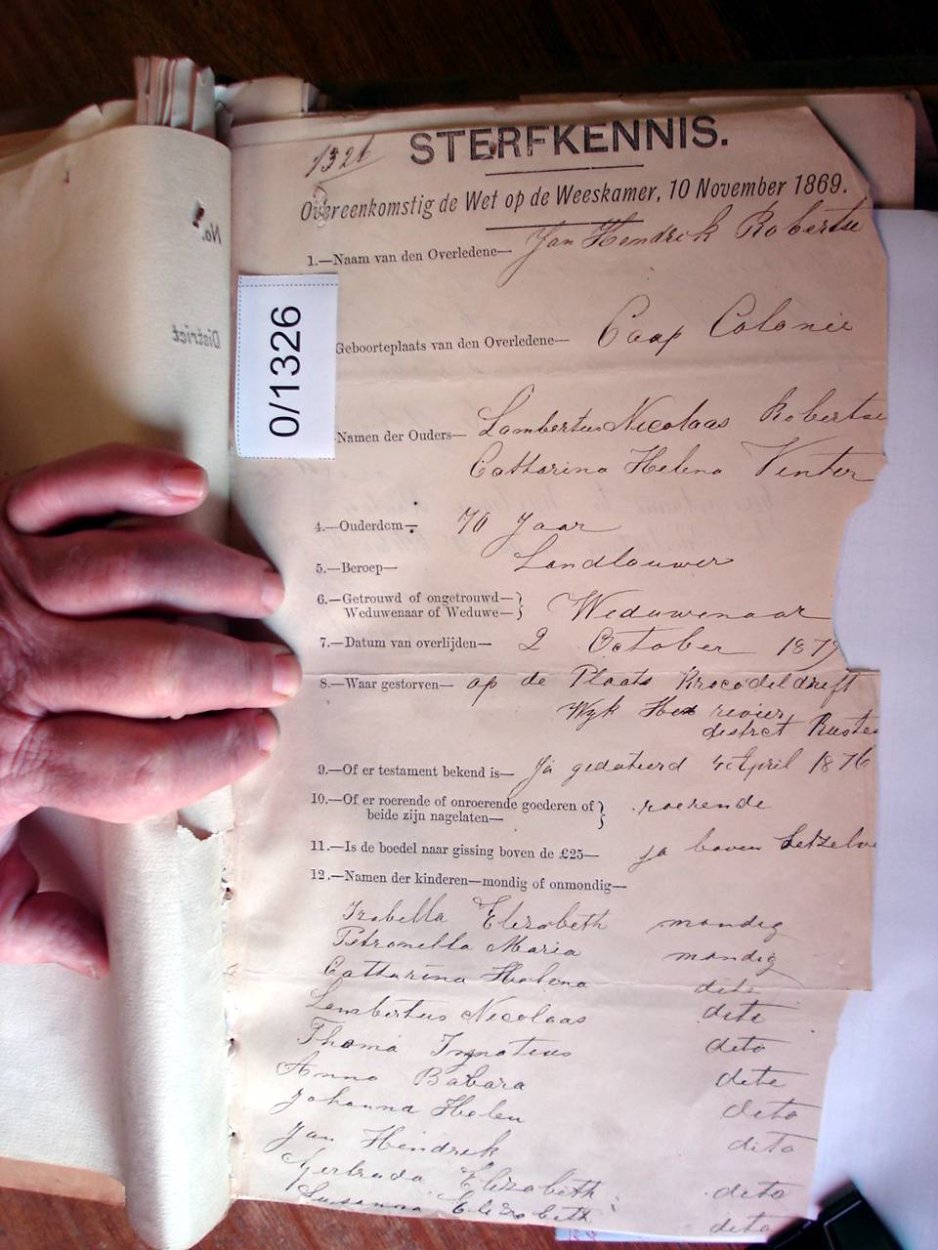 1326
STERFKENNIS.
Overeenkomstig de Wet op de Weeskamer, 10 November 1869.
1.—Naam van den Overledene— Jan Hendrik Robertse
0/1326
Geboorteplaats van den Overledene— Caap Colonie
Namen der Ouders— Lambertus Nicolaas Robertse
Catharina Helena Venter
4.—Ouderdom— 70 Jaar
5.—Beroep— Landbouwer
6.—Getrouwd of ongetrouwd—
Weduwenaar of Weduwe— Weduwenaar
7.—Datum van overlijden— 2 October 187
8.—Waar gestorven— op de Plaats Krocodildrift
Wyk Hex revier
district Rusten
9.—Of er testament bekend is— Ja gedateerd April 1876
10.—Of er roerende of onroerende goederen of
beide zijn nagelaten— roerende
11.—Is de boedel naar gissing boven de £25— ja boven
12.—Namen der kinderen—mondig of onmondig—
Izabella Elizabeth mondig
Petronella Maria mondig
Catharina Helena deto
Lambertus Nicolaas deto
Thoma Ignatius deto
Anna Babara deto
Johanna Helen deto
Jan Hendrik deto
Gertruda Elizabeth deto
Susanna Elizabeth deto
No.
District